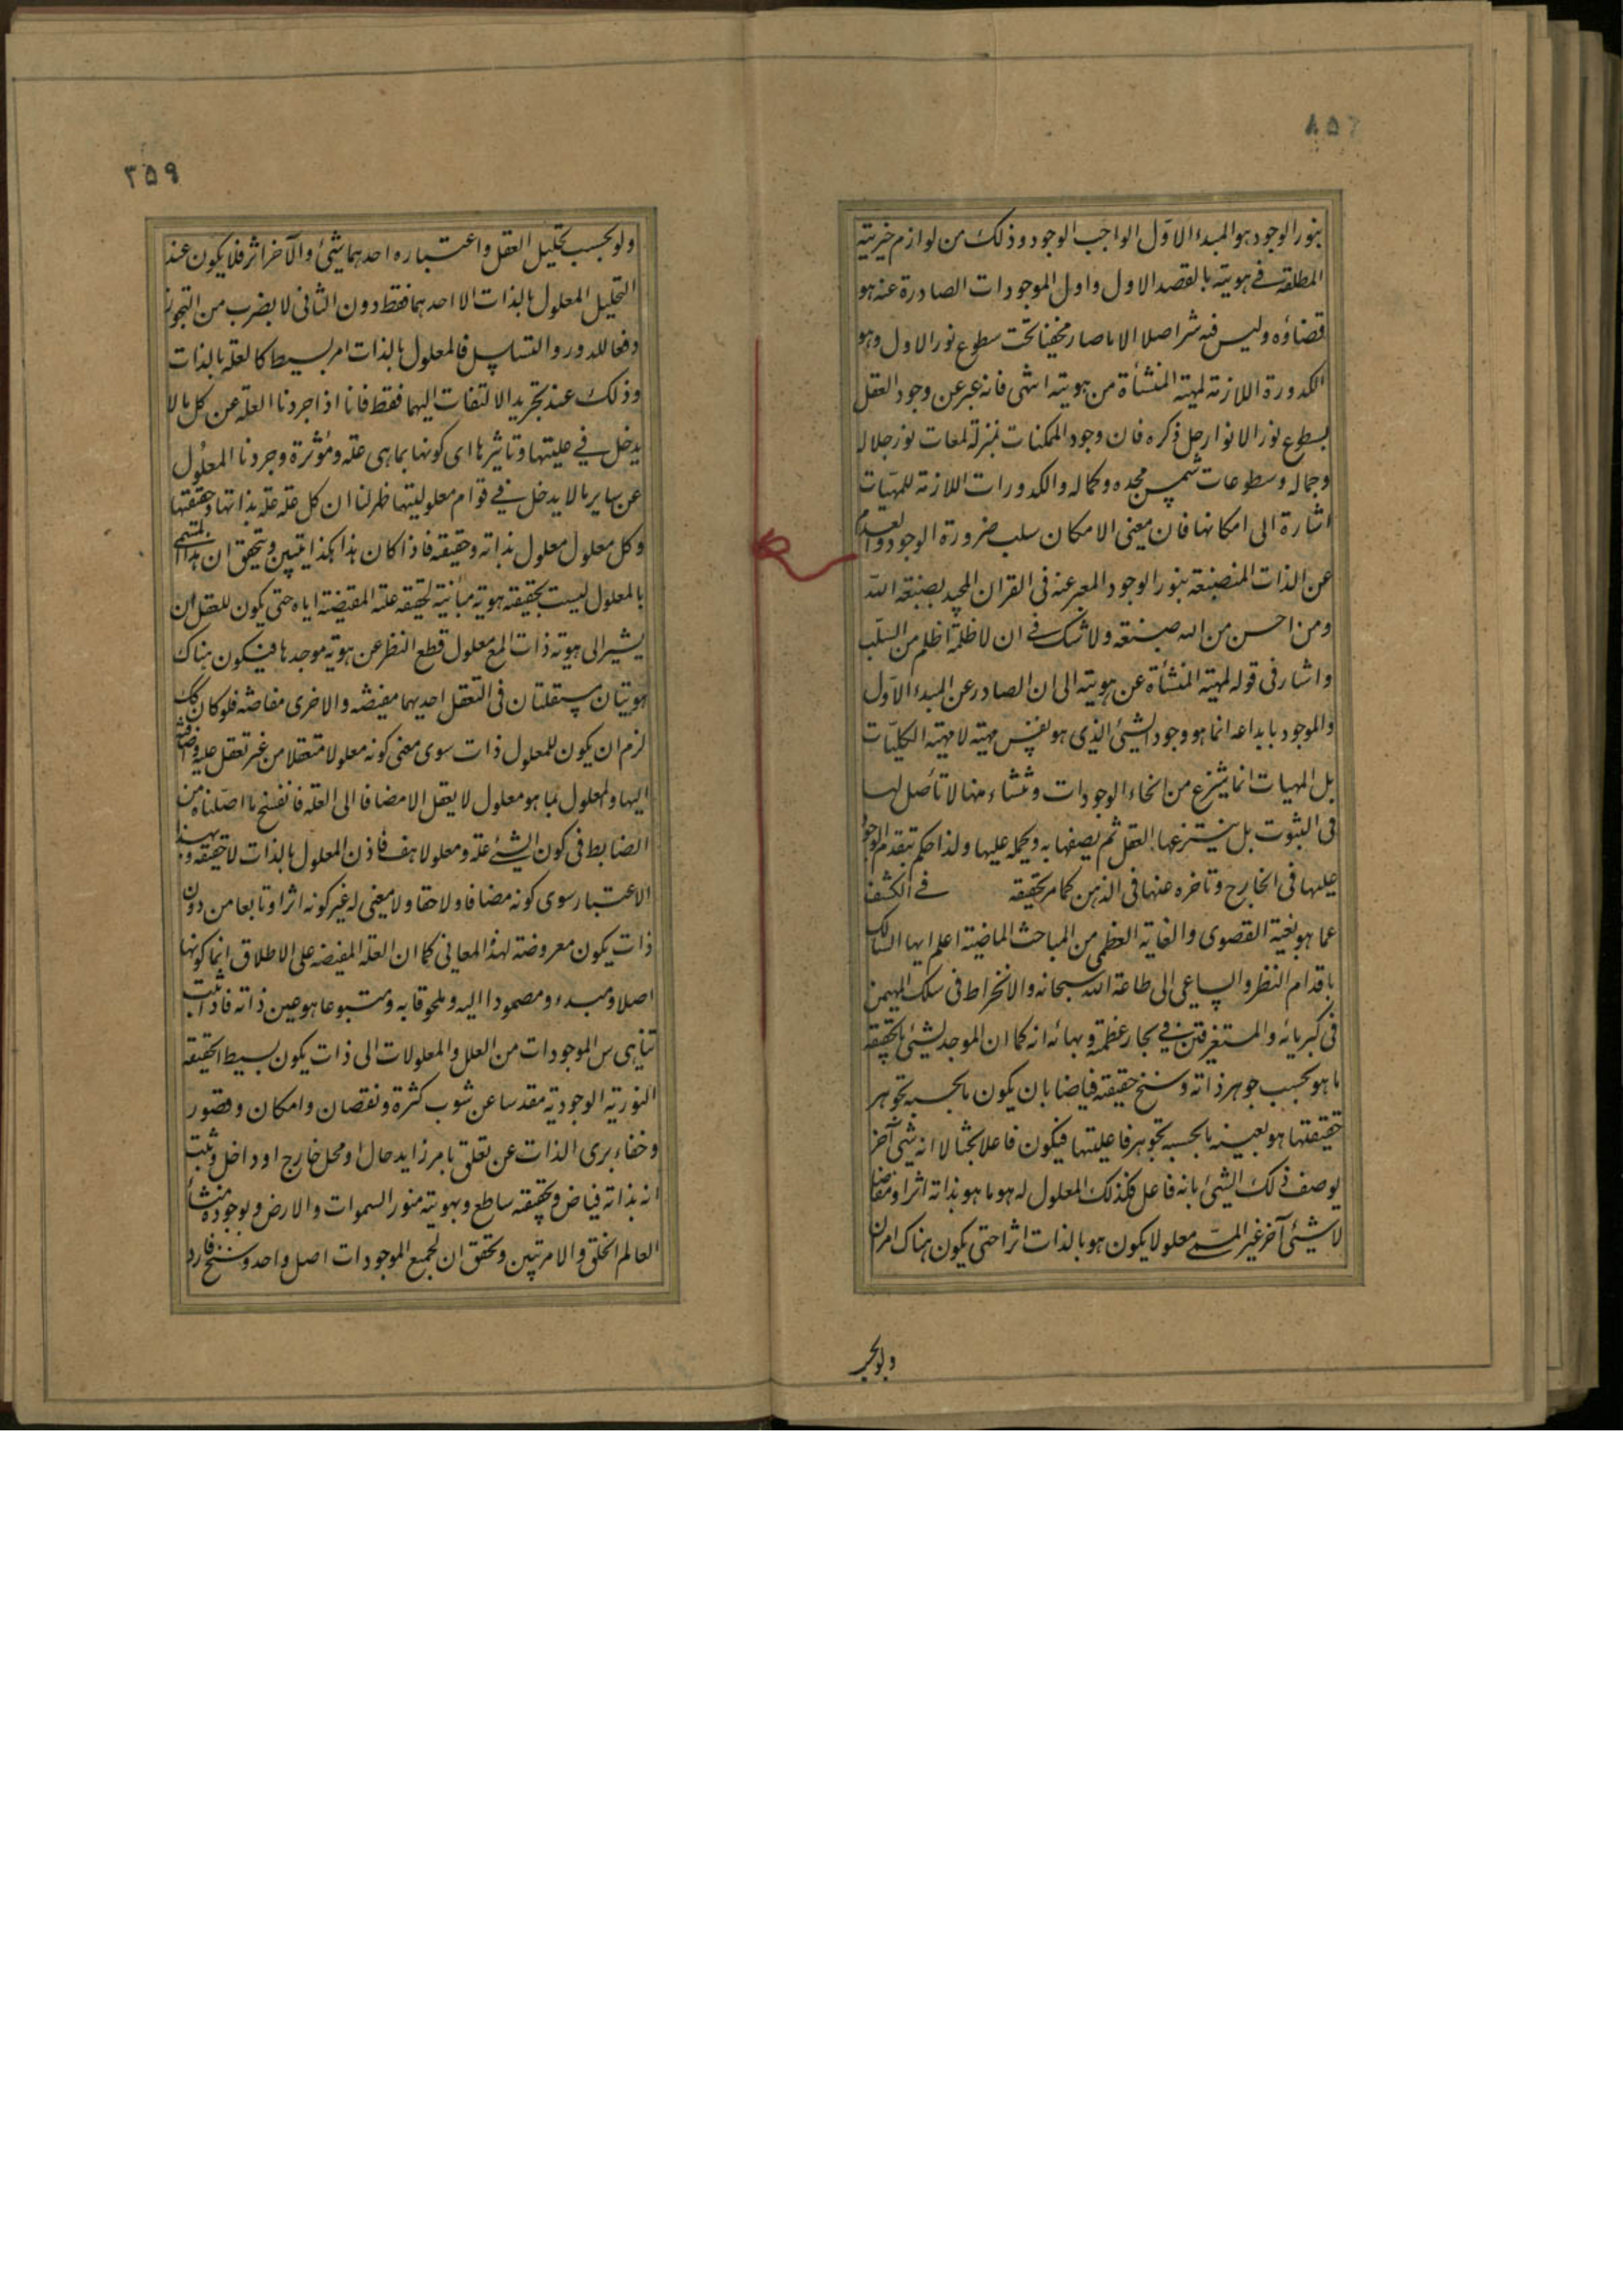 ٨٥٦
بنور الوجود هو المبدء الاول الواجب الوجود وذلك من لوازم خيريته
المطلقة في هويته بالقصد الاول واول الموجودات الصادرة عنه هو
قضاؤه وليس فيه شر اصلا الا ما صار مخفيا تحت سطوع نور الاول وهو
الكدورة اللازمة لمهيته المنشأة من هويته انتهى فانه عبر عن وجود العقل
بسطوع نور الانوار جل ذكره فان وجود الممكنات بمنزلة لمعات نور جلاله
وجماله وسطوعات شمس مجده وكماله والكدورات اللازمة للمهيات
اشارة الى امكانها فان معنى الامكان سلب ضرورة الوجود والعدم
عن الذات المنصبغة بنور الوجود المعبر عنه في القران المجيد بصبغة الله
ومن احسن من الله صبغة ولا شك في ان لا ظلمة اظلم من السلب
واشار في قوله لمهيته المنشأة عن هويته الى ان الصادر عن المبدء الاول
والموجود بابداعه انما هو وجود الشيئ الذي هو نفس مهيته لا مهيته الكليات
بل المهيات انما ينتزع من انحاء الوجودات وتنشاء منها لا تأصل لها
في الثبوت بل ينتزعها العقل ثم يصفها به ويحمله عليها ولذا حكم بتقدم الوجود
عليها في الخارج وتاخره عنها في الذهن كما مر تحقيقه في الكشف
عما هو بغية القصوى والغاية العظمى من المباحث الماضية اعلم ايها السالك
باقدام النظر والساعي الى طاعة الله سبحانه والانخراط في سلك المهيمن
في كبريائه والمستغرقين في بحار عظمته وبهائه انه كما ان الموجد لشيئ بالحقيقة
ما هو بحسب جوهر ذاته وسنخ حقيقته فياضا بان يكون ما بحسبه تجوهر
حقيقتها هو بعينه ما بحسبه تجوهر فاعليتها فيكون فاعلا بحتا لا انه شيئ آخر
يوصف ذلك الشيئ بانه فاعل فكذلك المعلول له هو ما هو بذاته اثر او مفاضا
لا شيئ آخر غير المسمى معلولا يكون هو بالذات اثرا حتى يكون هناك امران
ولو بحسب
٣٥٩
ولو بحسب تحليل العقل واعتباره احدهما شيئ والآخر اثر فلا يكون عند
التحليل المعلول بالذات الا احدهما فقط دون الثاني لا بضرب من التجوز
دفعا للدور والتسلسل فالمعلول بالذات امر بسيط كالعلة بالذات
وذلك عند تجريد الالتفات اليهما فقط فانا اذا جردنا العلة عن كل ما لا
يدخل في عليتها وتاثيرها اي كونها بما هي علة ومؤثرة وجردنا المعلول
عن ساير ما لا يدخل في قوام معلوليتها ظهر لنا ان كل علة علة بذاتها وحقيقتها
وكل معلول معلول بذاته وحقيقته فاذا كان هذا هكذا يتبين ويتحقق ان هذا المسمى
بالمعلول ليست بحقيقته هوية مباينة لحقيقة علته المقتضية اياه حتى يكون للعقل ان
يشير الى هوية ذات المع معلول قطع النظر عن هوية موجدها فيكون هناك
هويتان مستقلتان في التعقل احديهما مفيضه والاخرى مفاضه فلو كان كك
لزم ان يكون للمعلول ذات سوى معنى كونه معلولا متعقلا من غير تعقل علية واضافته
اليها والمعلول بما هو معلول لا يعقل الا مضافا الى العلة فانفسخ ما اصلناه من
الضابط في كون الشيئ علة ومعلولا هف فاذن المعلول بالذات لا حقيقة له بهذا
الاعتبار سوى كونه مضافا ولاحقا ولا معنى له غير كونه اثرا وتابعا من دون
ذات يكون معروضة لهذه المعاني كما ان العلة المفيضة على الاطلاق انما كونها
اصلا ومبدء ومصمودا اليه وملحوقا به ومتبوعا هو عين ذاته فاذا ثبت
تناهي س الموجودات من العلل والمعلولات الى ذات يكون بسيط الحقيقة
النورية الوجودية مقدسا عن شوب كثرة ونقصان وامكان وقصور
وخفاء برى الذات عن تعلق بامر زايد حال او محل خارج او داخل وثبت
انه بذاته فياض وبحقيقته ساطع وبهويته منور السموات والارض وبوجوده منشأ
العالم الخلق والامر تبين وتحقق ان لجميع الموجودات اصل واحد وسنخ فارد